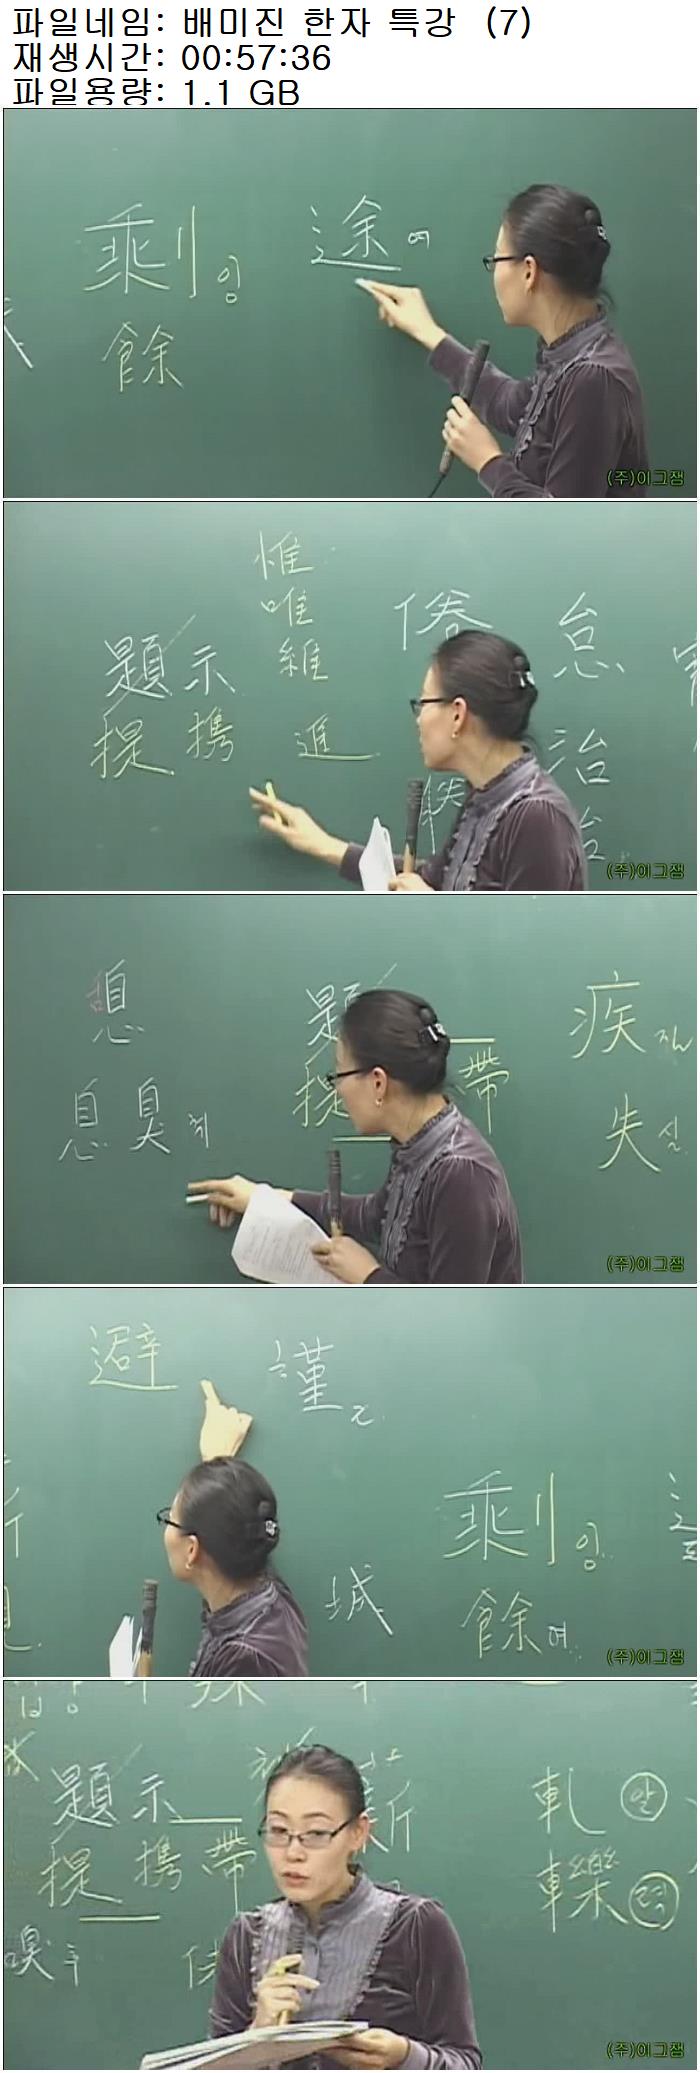 파일네임: 배미진 한자 특강 (7)
재생시간: 00:57:36
파일용량: 1.1 GB
剩 잉 途 여
餘
(주)이그잼
惟
唯
題示 維
提携 進
怠
治
(주)이그잼
憩
息臭 취
題
提 帶
疾 질
失 실
(주)이그잼
避 謹 근
剩 잉
城 餘 여
(주)이그잼
題示 新
提携帶
嗅 후
軋 알
轢 력
(주)이그잼